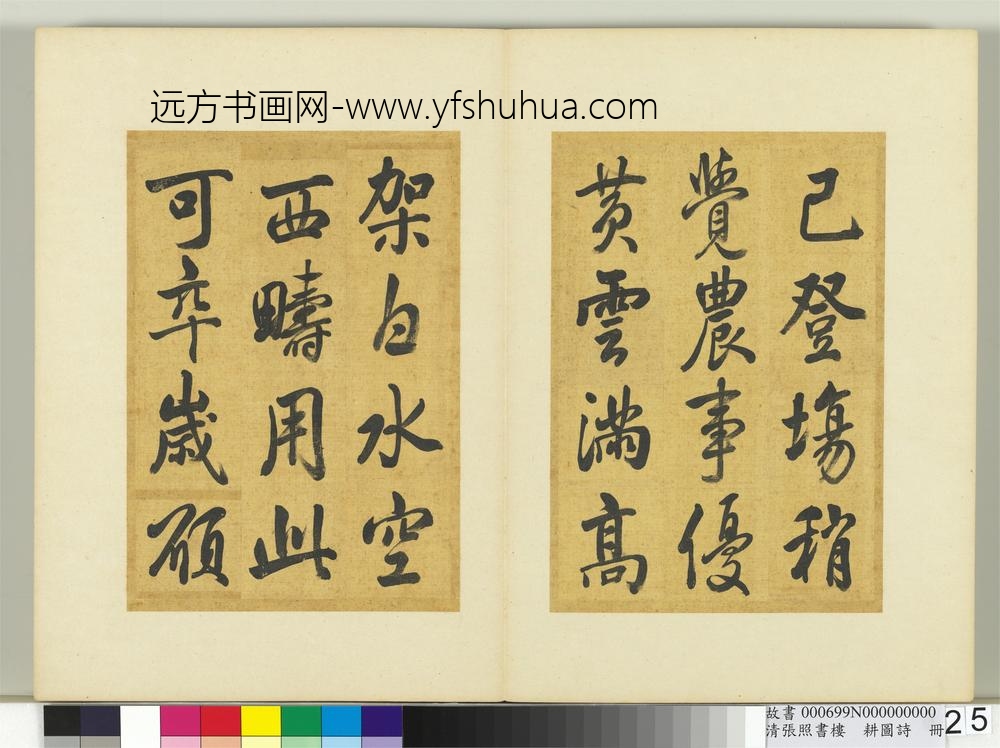 远方书画网-www.yfshuhua.com
已登塲稍
覺農事優
黃雲滿高
架白水空
西疇用此
可卒歲願
故書 000699N000000000
清張照書樓 耕圖詩 冊
25